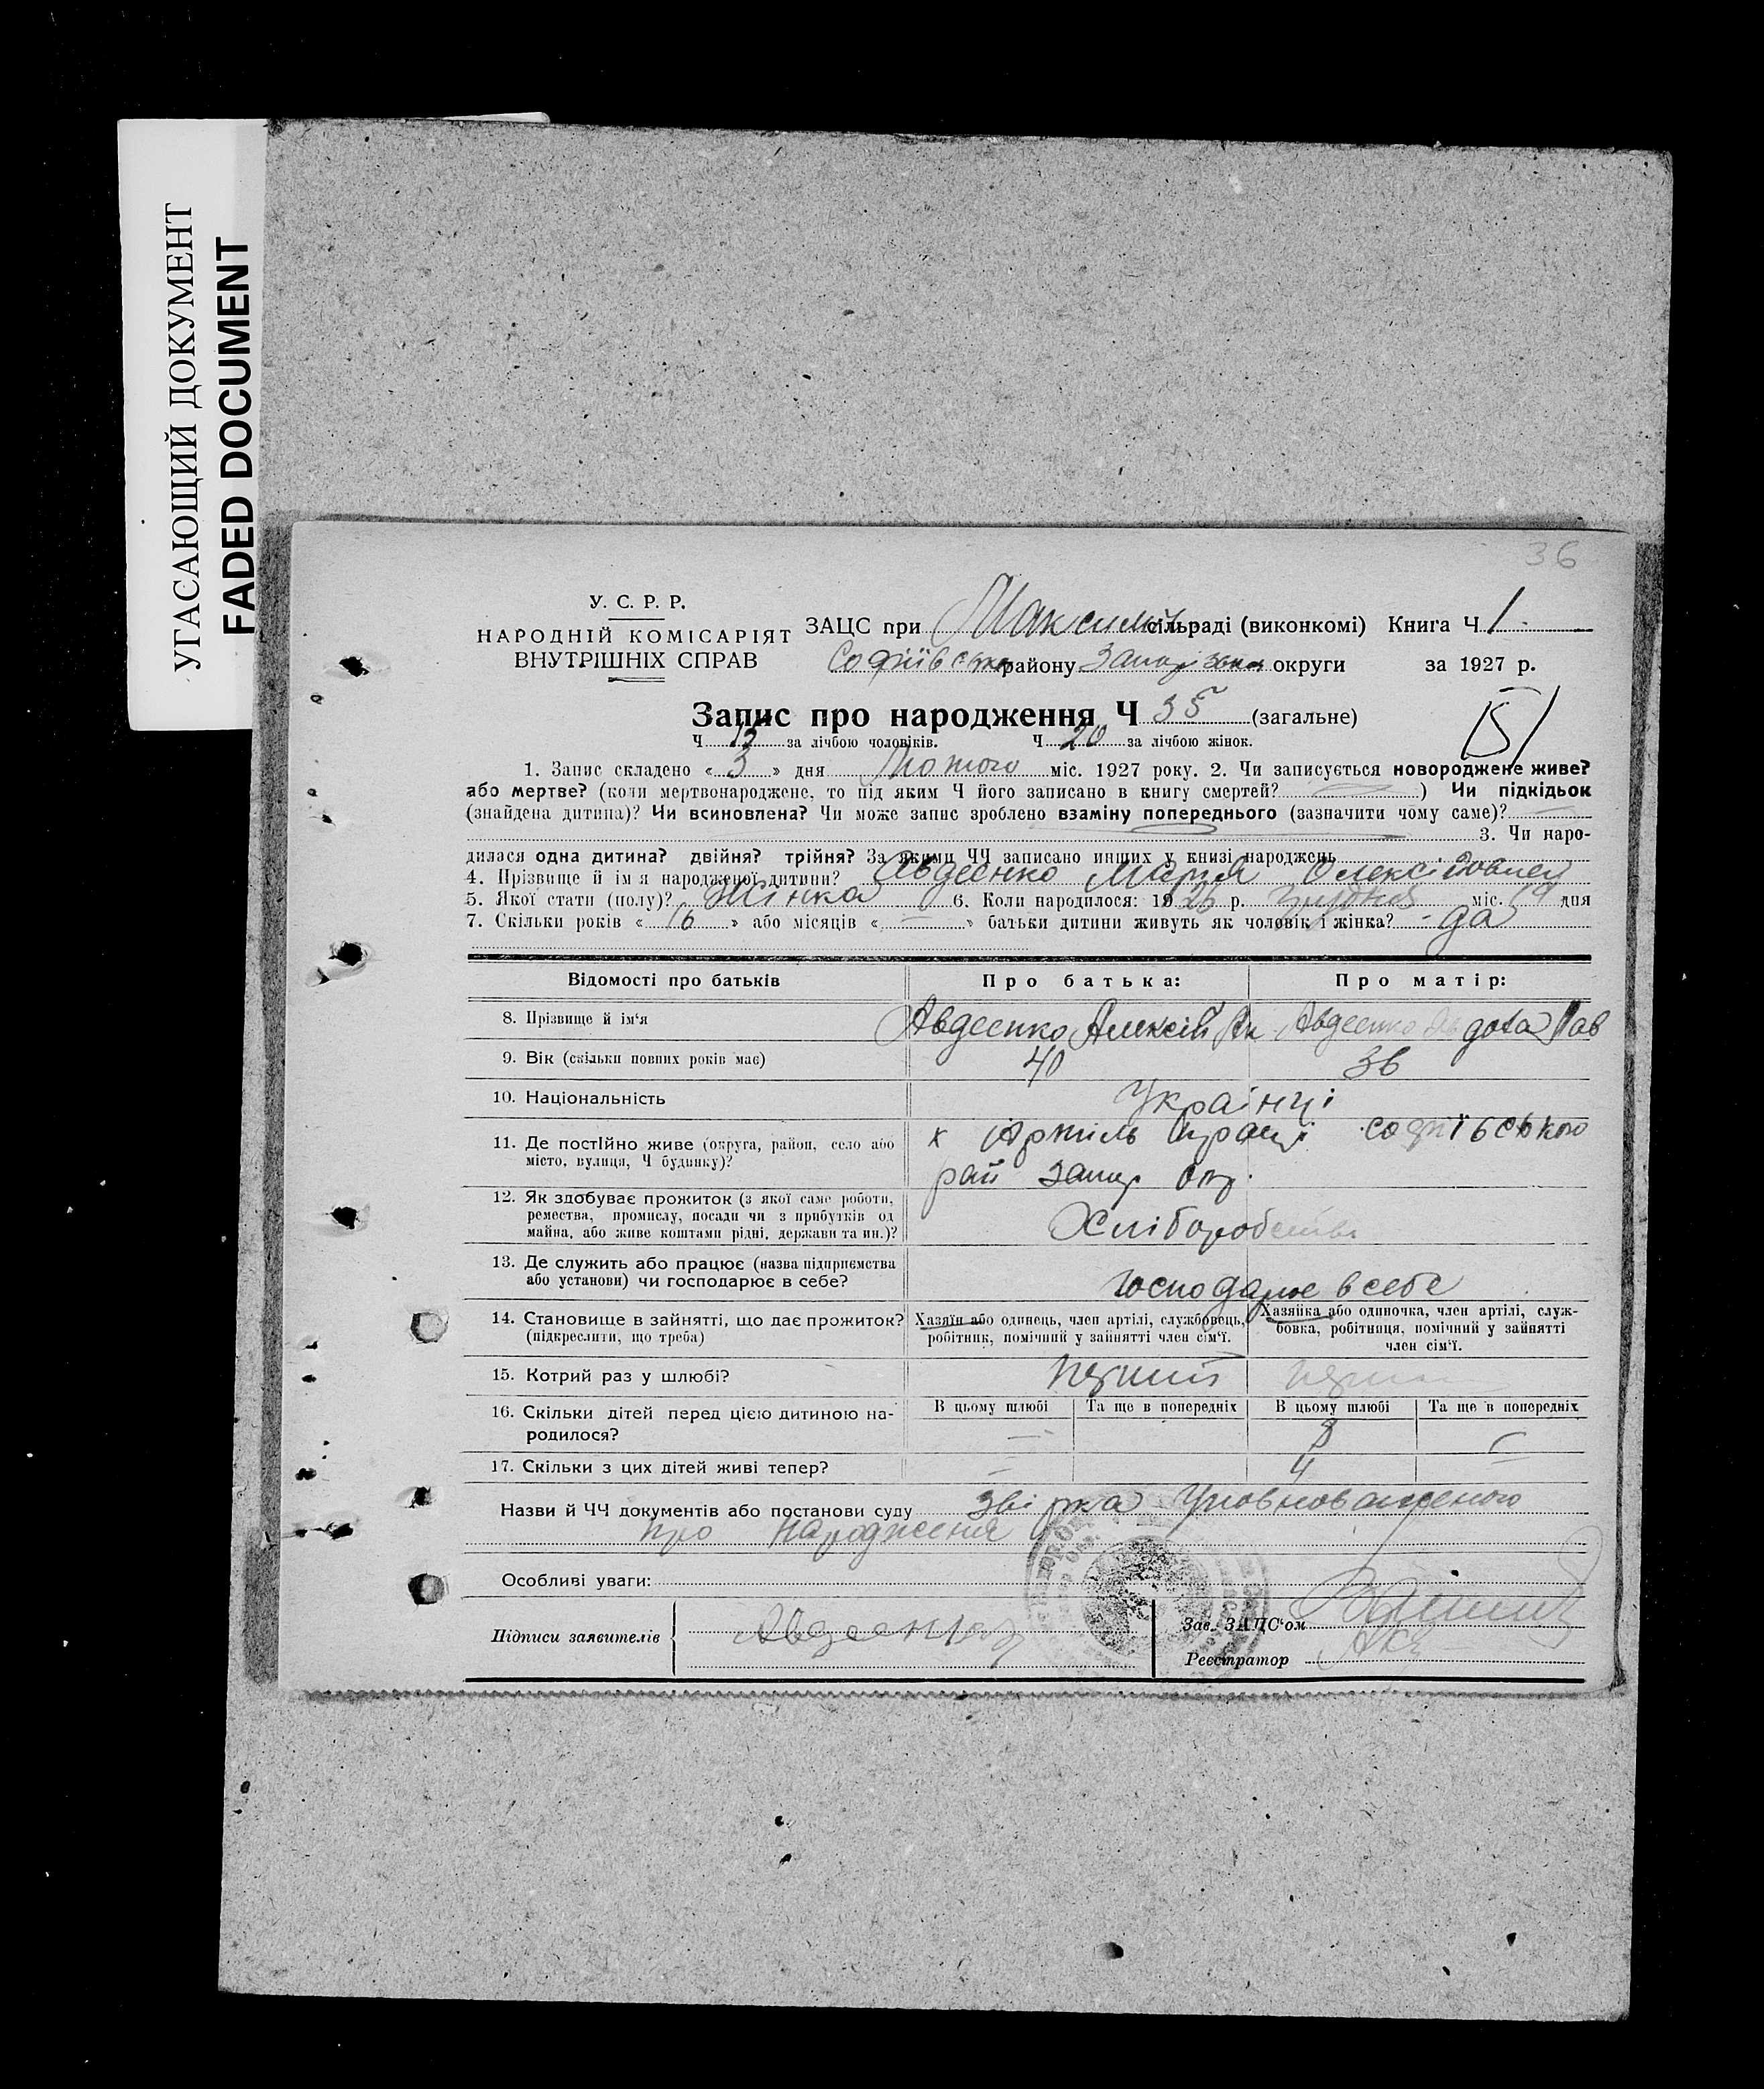 УГАСАЮЩИЙ ДОКУМЕНТ
FADED DOCUMENT
36
У. С. Р. Р.
НАРОДНІЙ КОМІСАРІЯТ
ВНУТРІШНІХ СПРАВ
ЗАЦС при сільраді (виконкомі) Книга Ч 1
Софіївсько району округи за 1927 р.
Запис про народження Ч 35 (загальне)
Ч 15 за лічбою чоловіків. Ч 20 за лічбою жінок.
1. Запис складено « 3 » дня Лютого міс. 1927 року. 2. Чи записується новороджене живе?
або мертве? (коли мертвонароджене, то під яким Ч його записано в книгу смертей? ) Чи підкідьок
(знайдена дитина)? Чи всиновлена? Чи може запис зроблено взаміну попереднього (зазначити чому саме)?
3. Чи наро-
дилася одна дитина? двійня? трійня? За якими ЧЧ записано инших у книзі народжень
4. Прізвище й ім я народженої дитини? Авдеенко Мария
5. Якої стати (полу)? Жінка 6. Коли народилося: 19 р. міс. дня
7. Скільки років « 16 » або місяців « — » батьки дитини живуть як чоловік і жінка? - да
Відомості про батьків Про батька: Про матір:
8. Прізвище й ім'я Авдеенко Алексій Як Авдеенко Пав
9. Вік (скільки повних років має) 40 36
10. Національність Українці
11. Де постійно живе (округа, район, село або
місто, вулиця, Ч будинку)?
х Артіль праці софіївського
рай запор окр.
12. Як здобуває прожиток (з якої саме роботи,
ремества, промислу, посади чи з прибутків од
майна, або живе коштами рідні, держави та ин.)?
Хліборобство
13. Де служить або працює (назва підприємства
або установи) чи господарює в себе?
господарює в себе
14. Становище в зайнятті, що дає прожиток?
(підкреслити, що треба)
Хазяїн або одинець, член артілі, службовець,
робітник, помічний у зайнятті член сім'ї.
Хазяйка або одиночка, член артілі, служ-
бовка, робітниця, помічний у зайнятті
член сім'ї.
15. Котрий раз у шлюбі? перший
16. Скільки дітей перед цією дитиною на-
родилося?
В цьому шлюбі Та ще в попередніх В цьому шлюбі Та ще в попередніх
— 8 —
17. Скільки з цих дітей живі тепер? — 4 —
Назви й ЧЧ документів або постанови суду звірка Уповноваженого
про народження
Особливі уваги:
Підписи заявителів Авдеенко
Зав. ЗАЦС'ом
Реєстратор